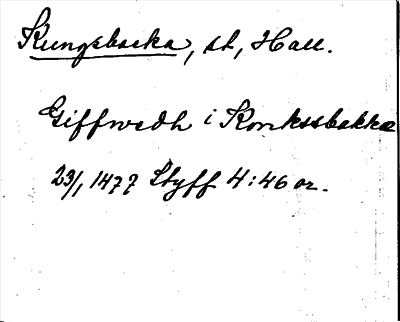 Kungsbacka, st, Hall.
Giffwedh i Konkssbakka
23/1 1477 Styff 4:46 or.